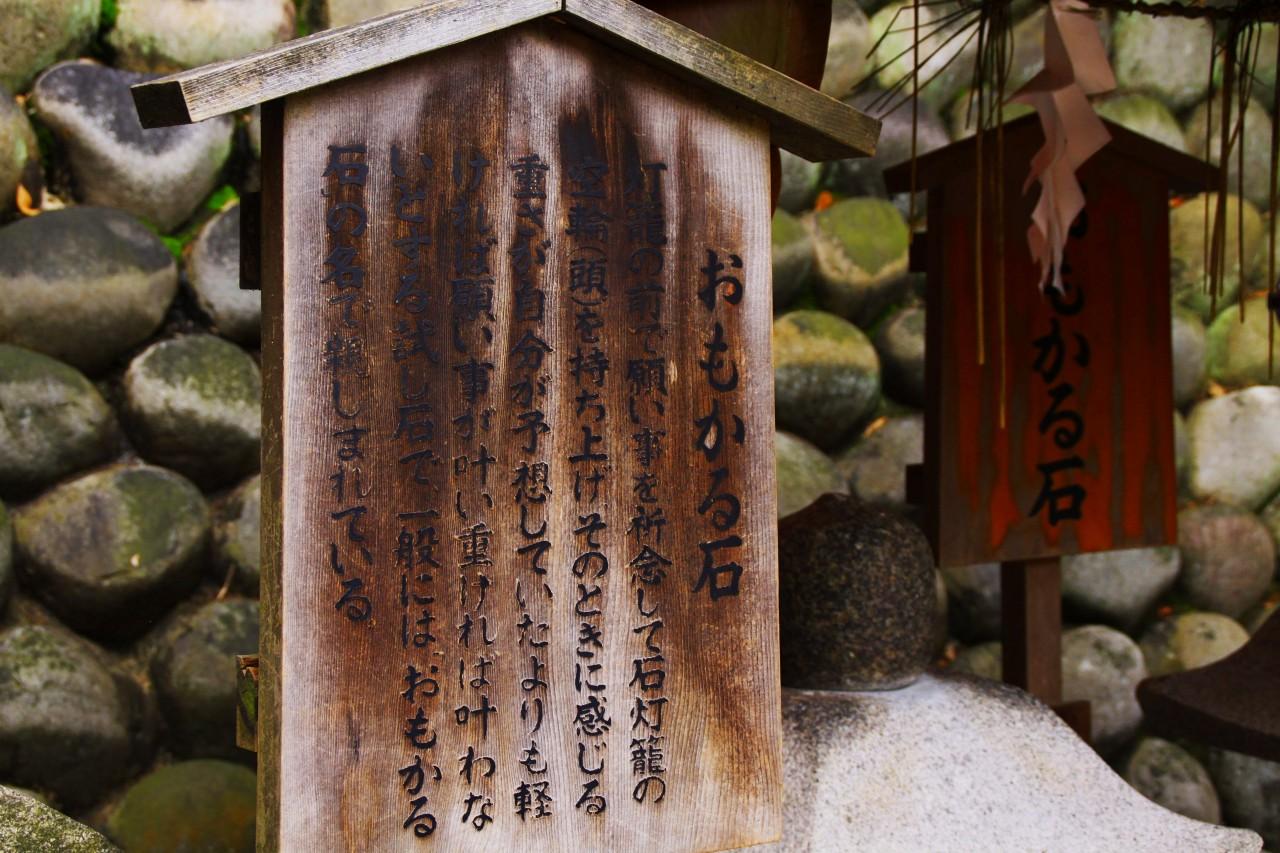 おもかる石
灯籠の前で願い事を祈念して石灯籠の
空輪(頭)を持ち上げそのときに感じる
重さが自分が予想していたよりも軽
ければ願い事が叶い重ければ叶わな
いとする試し石で、一般には「おもかる
石」の名で親しまれている
もかる石